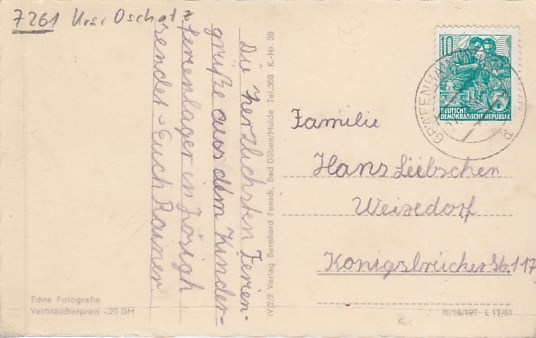 7261 Krsr Oschatz
Die herzlichsten Ferien-
grüße aus dem Kinder-
ferienlager in
sendet Euch Rainer
Echte Fotografie
Verbraucherpreis -.20 DM
IV/2/2 Verlag Bernhard Fensch, Bad Düben/Mulde Tel. 368 K.-Nr. 39
10
DEUTSCHE
DEMOKRATISCHE REPUBLIK
GRÄFENHA
Familie
Hans Leibschen
Weixdorf
Königsbrücker Str. 117
L 17/61